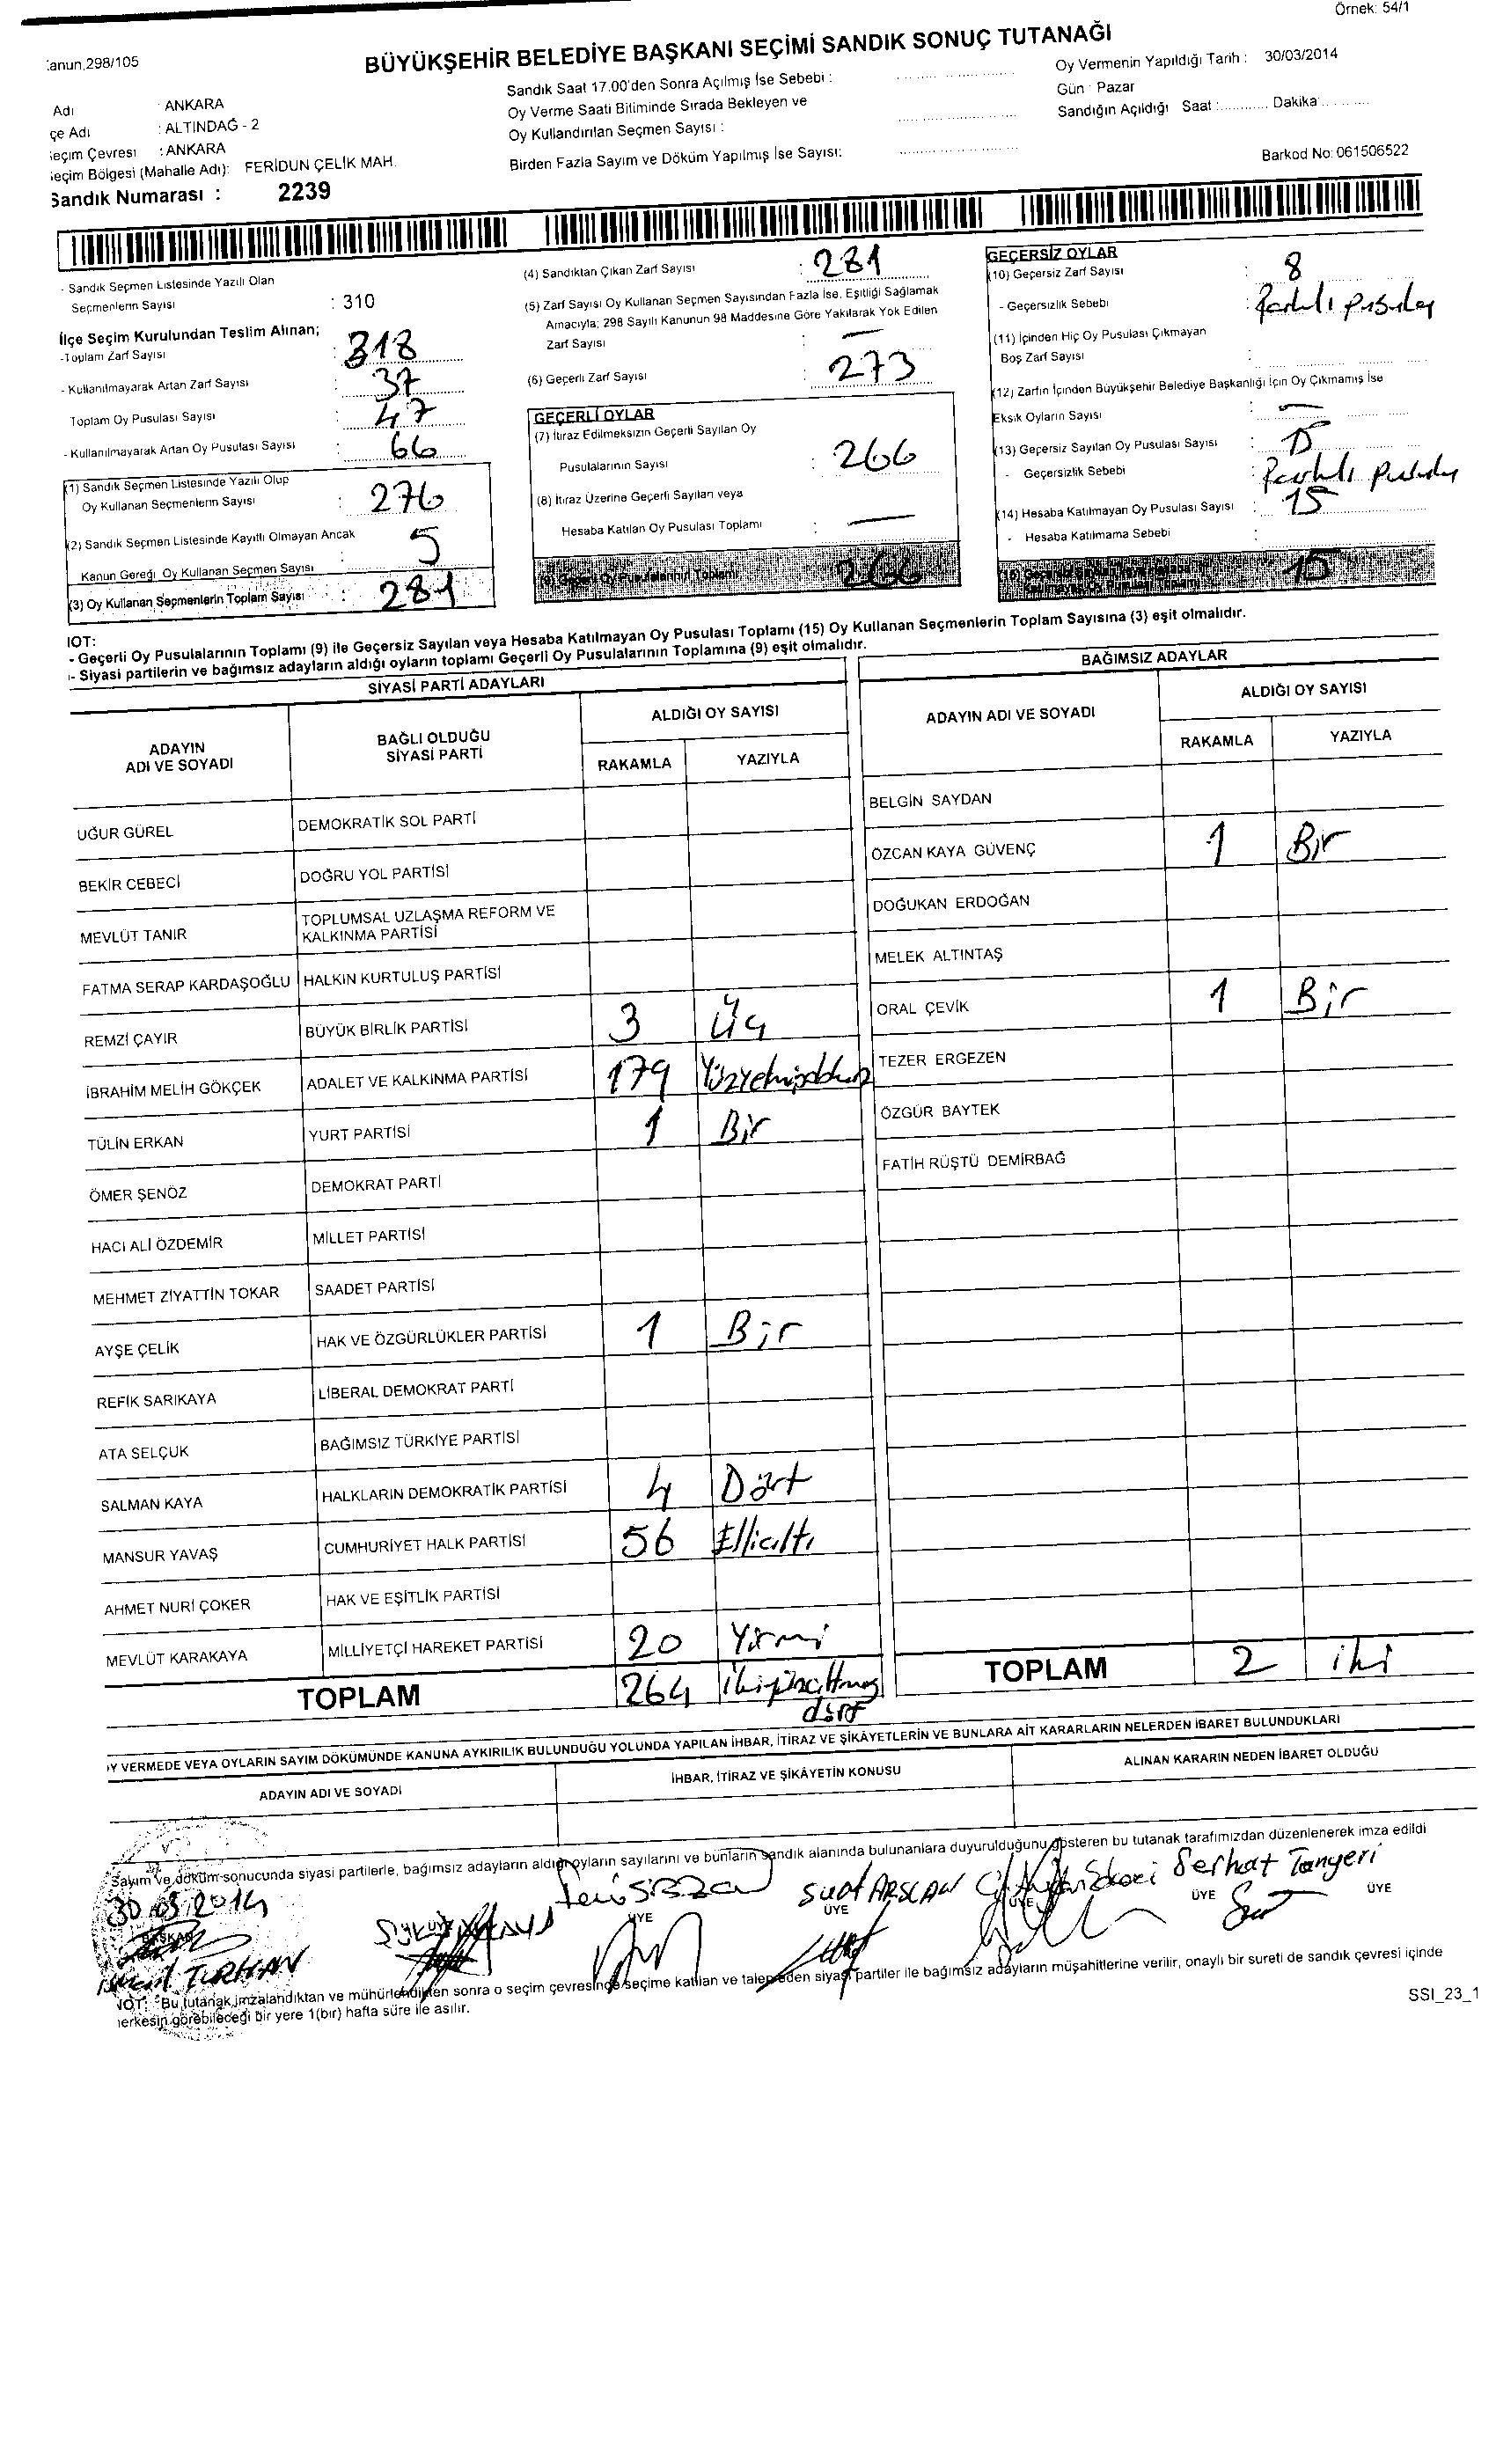 Örnek: 54/1
BÜYÜKŞEHİR BELEDİYE BAŞKANI SEÇİMİ SANDIK SONUÇ TUTANAĞI
:anun,298/105
Adı : ANKARA
çe Adı : ALTINDAĞ - 2
eçim Çevresi : ANKARA
eçim Bölgesi (Mahalle Adı): FERİDUN ÇELİK MAH.
Sandık Numarası : 2239
Sandık Saat 17.00'den Sonra Açılmış İse Sebebi :
Oy Verme Saati Bitiminde Sırada Bekleyen ve
Oy Kullandırılan Seçmen Sayısı :
Birden Fazla Sayım ve Döküm Yapılmış İse Sayısı:
Oy Vermenin Yapıldığı Tarih : 30/03/2014
Gün : Pazar
Sandığın Açıldığı Saat :............ Dakika:
Barkod No: 061506522
- Sandık Seçmen Listesinde Yazılı Olan
Seçmenlerin Sayısı : 310
İlçe Seçim Kurulundan Teslim Alınan;
-Toplam Zarf Sayısı : 318
- Kullanılmayarak Artan Zarf Sayısı : 37
Toplam Oy Pusulası Sayısı : 47
- Kullanılmayarak Artan Oy Pusulası Sayısı : 66
(1) Sandık Seçmen Listesinde Yazılı Olup
Oy Kullanan Seçmenlerin Sayısı : 276
(2) Sandık Seçmen Listesinde Kayıtlı Olmayan Ancak
Kanun Gereği Oy Kullanan Seçmen Sayısı 5
(3) Oy Kullanan Seçmenlerin Toplam Sayısı : 281
(4) Sandıktan Çıkan Zarf Sayısı : 281
(5) Zarf Sayısı Oy Kullanan Seçmen Sayısından Fazla İse, Eşitliği Sağlamak
Amacıyla; 298 Sayılı Kanunun 98 Maddesine Göre Yakılarak Yok Edilen
Zarf Sayısı : —
(6) Geçerli Zarf Sayısı : 273
GEÇERLİ OYLAR
(7) İtiraz Edilmeksizin Geçerli Sayılan Oy
Pusulalarının Sayısı : 266
(8) İtiraz Üzerine Geçerli Sayılan veya
Hesaba Katılan Oy Pusulası Toplamı : —
(9) Geçerli Oy Pusulalarının Toplamı 266
GEÇERSİZ OYLAR
(10) Geçersiz Zarf Sayısı : 8
- Geçersizlik Sebebi :
(11) İçinden Hiç Oy Pusulası Çıkmayan
Boş Zarf Sayısı :
(12) Zarfın İçinden Büyükşehir Belediye Başkanlığı İçin Oy Çıkmamış İse
Eksik Oyların Sayısı : —
(13) Geçersiz Sayılan Oy Pusulası Sayısı : 15
- Geçersizlik Sebebi :
(14) Hesaba Katılmayan Oy Pusulası Sayısı : 15
- Hesaba Katılmama Sebebi :
15
NOT:
- Geçerli Oy Pusulalarının Toplamı (9) ile Geçersiz Sayılan veya Hesaba Katılmayan Oy Pusulası Toplamı (15) Oy Kullanan Seçmenlerin Toplam Sayısına (3) eşit olmalıdır.
- Siyasi partilerin ve bağımsız adayların aldığı oyların toplamı Geçerli Oy Pusulalarının Toplamına (9) eşit olmalıdır.
SİYASİ PARTİ ADAYLARI
ADAYIN ADI VE SOYADI BAĞLI OLDUĞU SİYASİ PARTİ ALDIĞI OY SAYISI
RAKAMLA YAZIYLA
UĞUR GÜREL DEMOKRATİK SOL PARTİ
BEKİR CEBECİ DOĞRU YOL PARTİSİ
MEVLÜT TANIR TOPLUMSAL UZLAŞMA REFORM VE KALKINMA PARTİSİ
FATMA SERAP KARDAŞOĞLU HALKIN KURTULUŞ PARTİSİ
REMZİ ÇAYIR BÜYÜK BİRLİK PARTİSİ 3 Üç
İBRAHİM MELİH GÖKÇEK ADALET VE KALKINMA PARTİSİ 179 Yüzyetmişdokuz
TÜLİN ERKAN YURT PARTİSİ 1 Bir
ÖMER ŞENÖZ DEMOKRAT PARTİ
HACI ALİ ÖZDEMİR MİLLET PARTİSİ
MEHMET ZİYATTİN TOKAR SAADET PARTİSİ
AYŞE ÇELİK HAK VE ÖZGÜRLÜKLER PARTİSİ 1 Bir
REFİK SARIKAYA LİBERAL DEMOKRAT PARTİ
ATA SELÇUK BAĞIMSIZ TÜRKİYE PARTİSİ
SALMAN KAYA HALKLARIN DEMOKRATİK PARTİSİ 4 Dört
MANSUR YAVAŞ CUMHURİYET HALK PARTİSİ 56 Ellialtı
AHMET NURİ ÇOKER HAK VE EŞİTLİK PARTİSİ
MEVLÜT KARAKAYA MİLLİYETÇİ HAREKET PARTİSİ 20 Yirmi
TOPLAM 264 ikiyüzaltmış dört
BAĞIMSIZ ADAYLAR
ADAYIN ADI VE SOYADI ALDIĞI OY SAYISI
RAKAMLA YAZIYLA
BELGİN SAYDAN
ÖZCAN KAYA GÜVENÇ 1 Bir
DOĞUKAN ERDOĞAN
MELEK ALTINTAŞ
ORAL ÇEVİK 1 Bir
TEZER ERGEZEN
ÖZGÜR BAYTEK
FATİH RÜŞTÜ DEMİRBAĞ
TOPLAM 2 iki
OY VERMEDE VEYA OYLARIN SAYIM DÖKÜMÜNDE KANUNA AYKIRILIK BULUNDUĞU YOLUNDA YAPILAN İHBAR, İTİRAZ VE ŞİKÂYETLERİN VE BUNLARA AİT KARARLARIN NELERDEN İBARET BULUNDUKLARI
ADAYIN ADI VE SOYADI İHBAR, İTİRAZ VE ŞİKÂYETİN KONUSU ALINAN KARARIN NEDEN İBARET OLDUĞU
Sayım ve döküm sonucunda siyasi partilerle, bağımsız adayların aldığı oyların sayılarını ve bunların sandık alanında bulunanlara duyurulduğunu gösteren bu tutanak tarafımızdan düzenlenerek imza edildi
30.03.2014
Suat ARSLAN Serhat Tanyeri
BAŞKAN ÜYE ÜYE ÜYE ÜYE ÜYE
TURHAN
NOT: Bu tutanak imzalandıktan ve mühürlendikten sonra o seçim çevresinde seçime katılan ve talep eden siyasi partiler ile bağımsız adayların müşahitlerine verilir, onaylı bir sureti de sandık çevresi içinde
herkesin görebileceği bir yere 1(bir) hafta süre ile asılır.
SSI_23_1